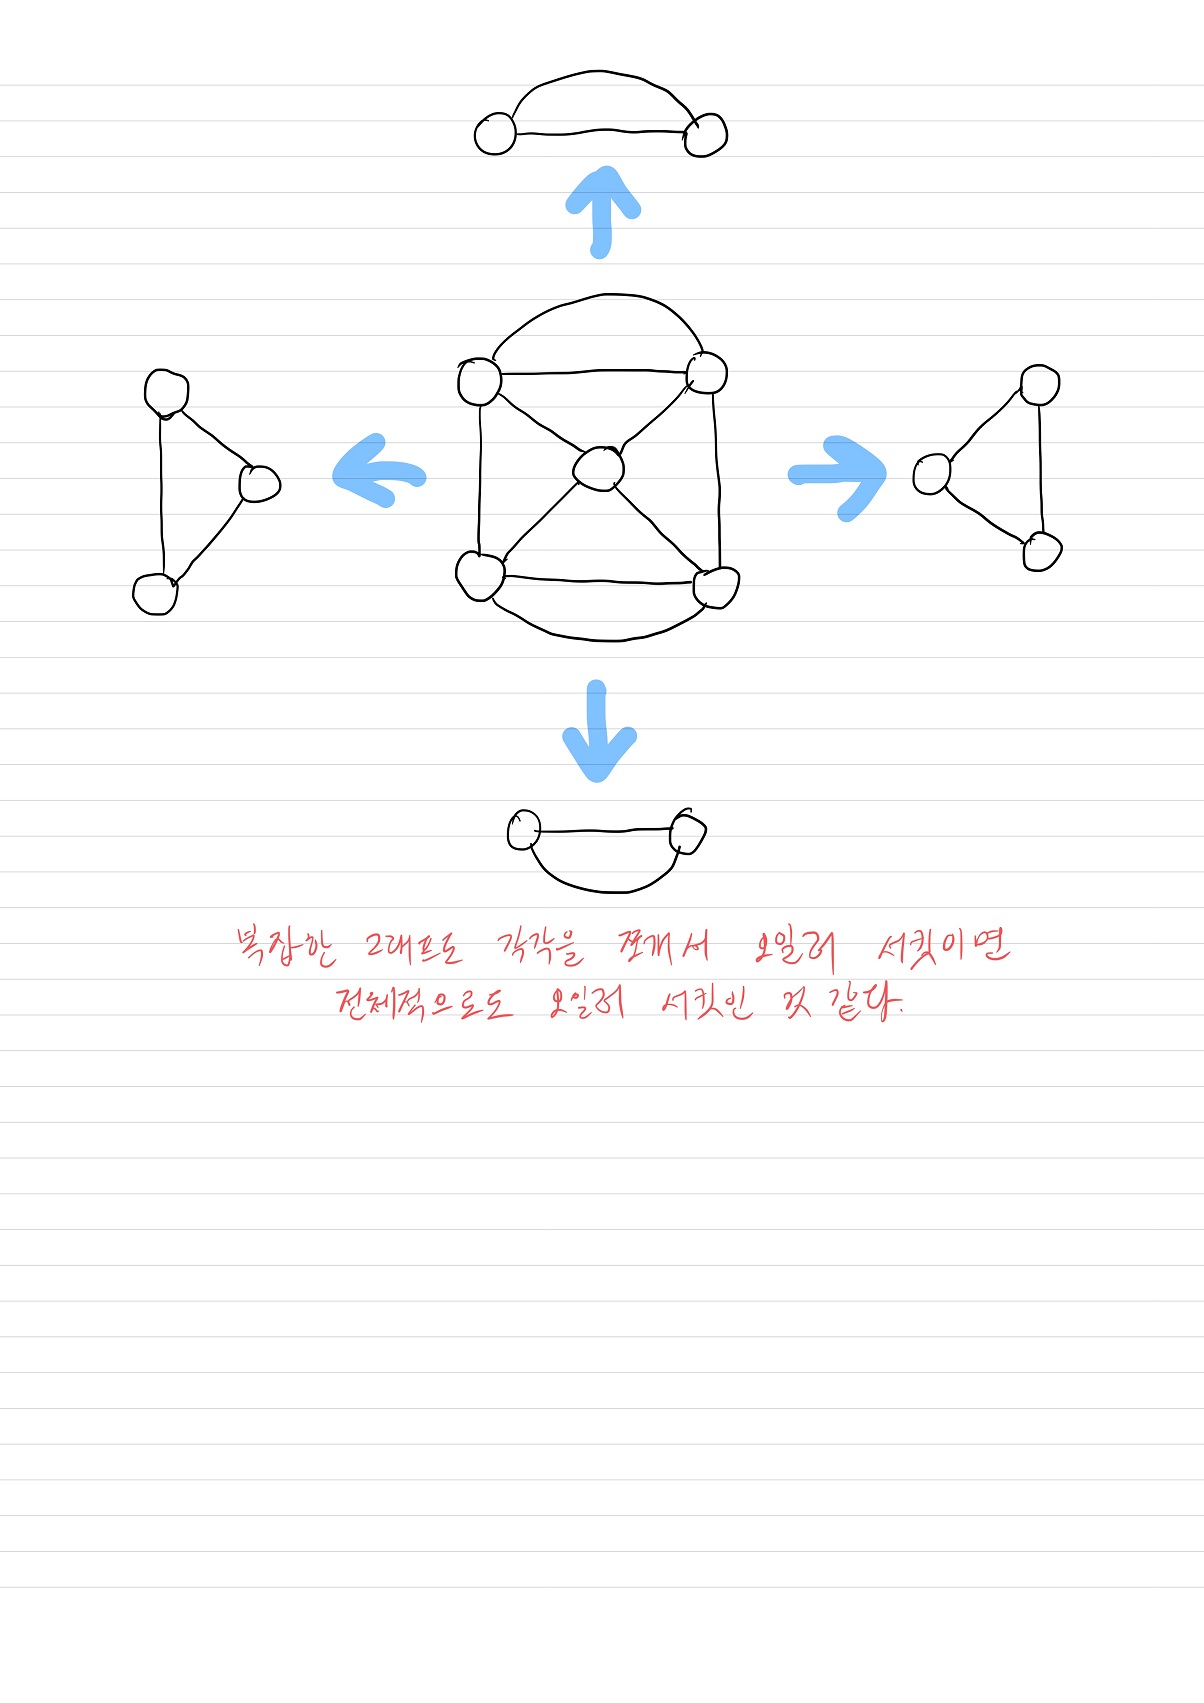 복잡한 그래프도 각각을 쪼개서 오일러 서킷이면
전체적으로도 오일러 서킷인 것 같다.